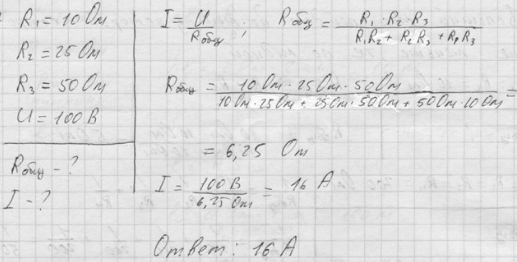 R₁ = 10 Ом
R₂ = 25 Ом
R₃ = 50 Ом
U = 100 В
Rобщ - ?
I - ?
I = U / Rобщ ; Rобщ = R₁ · R₂ · R₃ / R₁R₂ + R₂R₃ + R₁R₃
Rобщ = 10 Ом · 25 Ом · 50 Ом / 10 Ом · 25 Ом + 25 Ом · 50 Ом + 50 Ом · 10 Ом =
= 6,25 Ом
I = 100 В / 6,25 Ом = 16 А
Ответ: 16 А